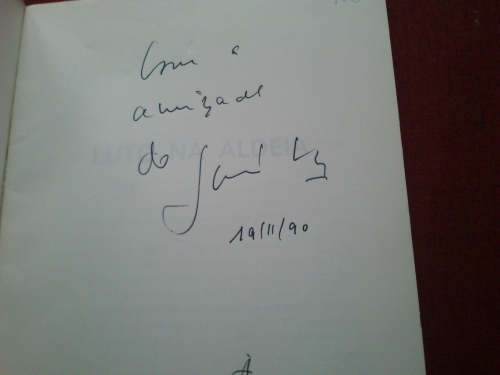 Com a
amizade
do
19/11/90
LUTO NA ALDEIA
À